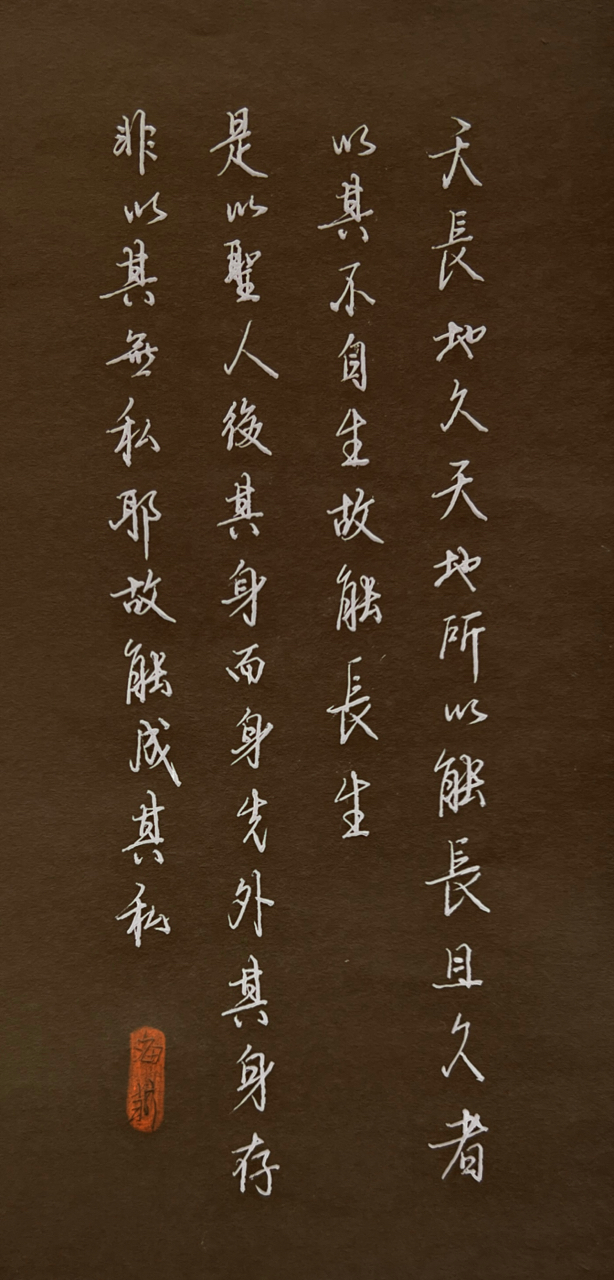 天長地久天地所以能長且久者
以其不自生故能長生
是以聖人後其身而身先外其身存
非以其無私耶故能成其私
海新